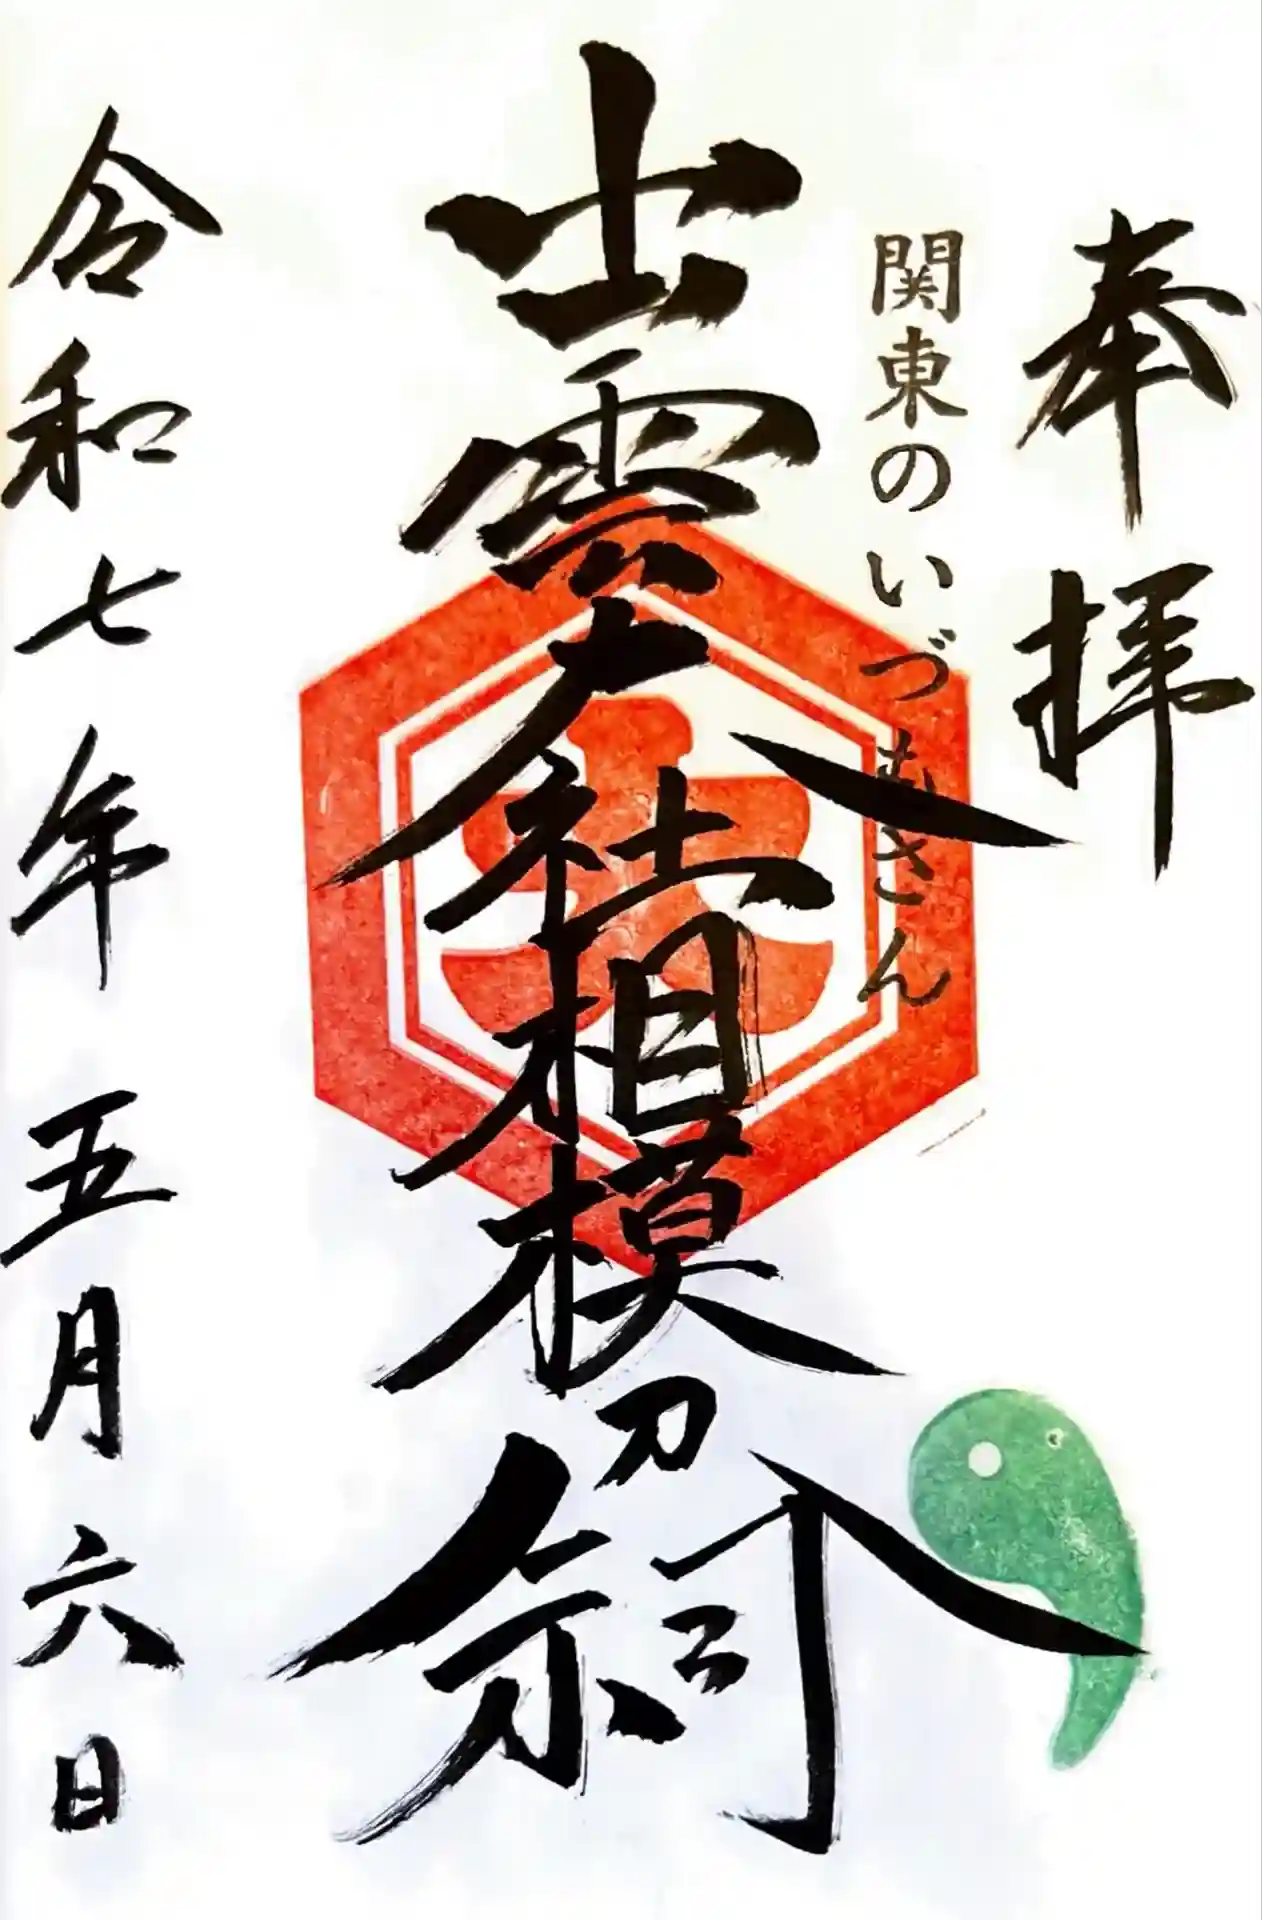 奉拝
関東のいづもさん
出雲大社相模分祠
令和七年五月六日